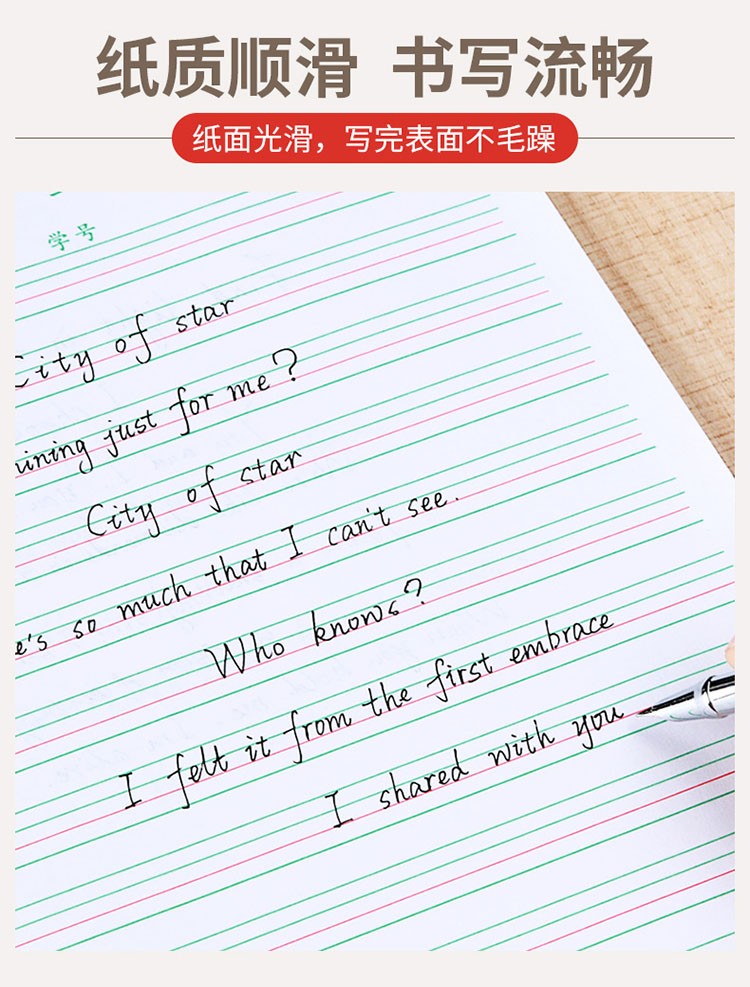 纸质顺滑 书写流畅
纸面光滑，写完表面不毛躁
学号
City of star
ining just for me?
City of star
e's so much that I can't see.
Who knows?
I felt it from the first embrace
I shared with you